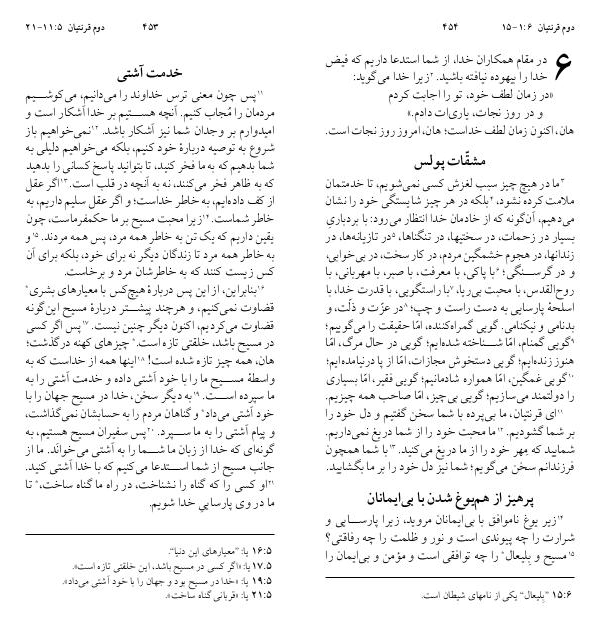 دوم قرنتیان ۵:‏۱۱-۲۱
۴۵۳
خدمت آشتی
۱۱پس چون معنی ترس خداوند را می‌دانیم، می‌کوشیم
مردمان را مُجاب کنیم. آنچه هستیم بر خدا آشکار است و
امیدوارم بر وجدان شما نیز آشکار باشد. ۱۲نمی‌خواهیم باز
شروع به توصیه دربارهٔ خود کنیم، بلکه می‌خواهیم دلیلی به
شما بدهیم که به ما فخر کنید، تا بتوانید پاسخ کسانی را بدهید
که به ظاهر فخر می‌کنند، نه به آنچه در قلب است. ۱۳اگر عقل
از کف داده‌ایم، به خاطر خداست؛ و اگر عقل سلیم داریم، به
خاطر شماست. ۱۴زیرا محبت مسیح بر ما حکمفرماست، چون
یقین داریم که یک تن به خاطر همه مرد، پس همه مردند. ۱۵و
به خاطر همه مرد تا زندگان دیگر نه برای خود، بلکه برای آن
کس زیست کنند که به خاطرشان مرد و برخاست.
۱۶بنابراین، از این پس دربارهٔ هیچ‌کس با معیارهای بشری*
قضاوت نمی‌کنیم، و هرچند پیشتر دربارهٔ مسیح این‌گونه
قضاوت می‌کردیم، اکنون دیگر چنین نیست. ۱۷پس اگر کسی
در مسیح باشد، خلقتی تازه است.* چیزهای کهنه درگذشت؛
هان، همه چیز تازه شده است! ۱۸اینها همه از خداست که به
واسطهٔ مسیح ما را با خود آشتی داده و خدمت آشتی را به
ما سپرده است. ۱۹به دیگر سخن، خدا در مسیح جهان را با
خود آشتی می‌داد* و گناهان مردم را به حسابشان نمی‌گذاشت،
و پیام آشتی را به ما سپرد. ۲۰پس سفیران مسیح هستیم، به
گونه‌ای که خدا از زبان ما شما را به آشتی می‌خواند. ما از
جانب مسیح از شما استدعا می‌کنیم که با خدا آشتی کنید.
۲۱او کسی را که گناه را نشناخت، در راه ما گناه ساخت،* تا
ما در وی پارسایی خدا شویم.
۵:‏۱۶ یا: "معیارهای این دنیا".
۵:‏۱۷ یا: «اگر کسی در مسیح باشد، این خلقتی تازه است».
۵:‏۱۹ یا: «خدا در مسیح بود و جهان را با خود آشتی می‌داد».
۵:‏۲۱ یا: «قربانی گناه ساخت».
دوم قرنتیان ۶:‏۱-۱۵
۴۵۴
۶ در مقام همکاران خدا، از شما استدعا داریم که فیض
خدا را بیهوده نیافته باشید. ۲زیرا خدا می‌گوید:
«در زمان لطف خود، تو را اجابت کردم
و در روز نجات، یاری‌ات دادم.»
هان، اکنون زمان لطف خداست؛ هان، امروز روز نجات است.
مشقّات پولس
۳ما در هیچ چیز سبب لغزش کسی نمی‌شویم، تا خدمتمان
ملامت کرده نشود، ۴بلکه در هر چیز شایستگی خود را نشان
می‌دهیم، آن‌گونه که از خادمان خدا انتظار می‌رود: با بردباریِ
بسیار در زحمات، در سختیها، در تنگناها، ۵در تازیانه‌ها، در
زندانها، در هجوم خشمگین مردم، در کار سخت، در بی‌خوابی،
و در گرسنگی؛ ۶با پاکی، با معرفت، با صبر، با مهربانی، با
روح‌القدس، با محبت بی‌ریا، ۷با راستگویی، با قدرت خدا، با
اسلحهٔ پارسایی به دست راست و چپ؛ ۸در عزّت و ذلّت، و
بدنامی و نیکنامی. گویی گمراه‌کننده، امّا حقیقت را می‌گوییم؛
۹گویی گمنام، امّا شناخته شده‌ایم؛ گویی در حال مرگ، امّا
هنوز زنده‌ایم؛ گویی دستخوش مجازات، امّا از پا درنیامده‌ایم؛
۱۰گویی غمگین، امّا همواره شادمانیم؛ گویی فقیر، امّا بسیاری
را دولتمند می‌سازیم؛ گویی بی‌چیز، امّا صاحب همه چیزیم.
۱۱ای قرنتیان، ما بی‌پرده با شما سخن گفتیم و دل خود را
بر شما گشودیم. ۱۲ما محبت خود را از شما دریغ نمی‌داریم.
شمایید که مِهر خود را از ما دریغ می‌کنید. ۱۳با شما همچون
فرزندانم سخن می‌گویم؛ شما نیز دل خود را بر ما بگشایید.
پرهیز از هم‌یوغ شدن با بی‌ایمانان
۱۴زیر یوغ ناموافق با بی‌ایمانان مروید، زیرا پارسایی و
شرارت را چه پیوندی است و نور و ظلمت را چه رفاقتی؟
۱۵مسیح و بِلیعال* را چه توافقی است و مؤمن و بی‌ایمان را
۶:‏۱۵ "بِلیعال" یکی از نامهای شیطان است.